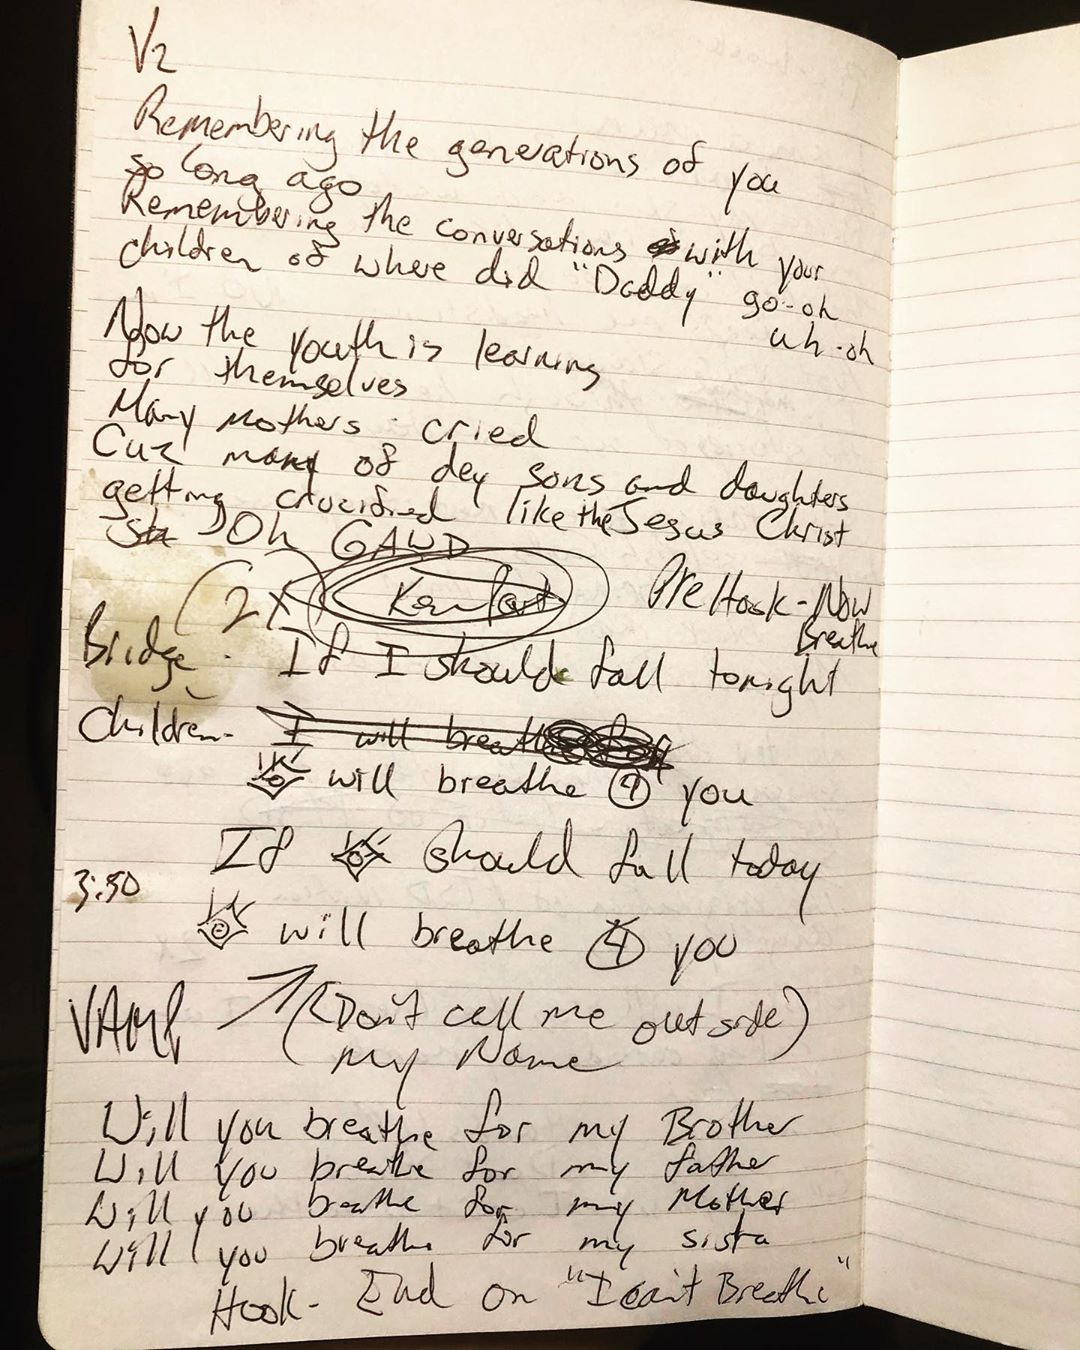 V2
Remembering the generations of you
so long ago
Remembering the conversations with your
children of where did "Daddy" go-oh
uh-oh
Now the youth is learning
for themselves
Many Mothers cried
Cuz many of dey sons and daughters
getting crucified like the Jesus Christ
Oh GAWD
(2x) PreHook - Now
Breathe
Bridge - If I should fall tonight
Children - I will breathe
will breathe 4 you
If should fall today
3:50
will breathe 4 you
VAMP (Don't call me outside)
my Name
Will you breathe for my Brother
Will you breathe for my father
Will you breathe for my Mother
Will you breathe for my sista
Hook - End on "I can't Breathe"